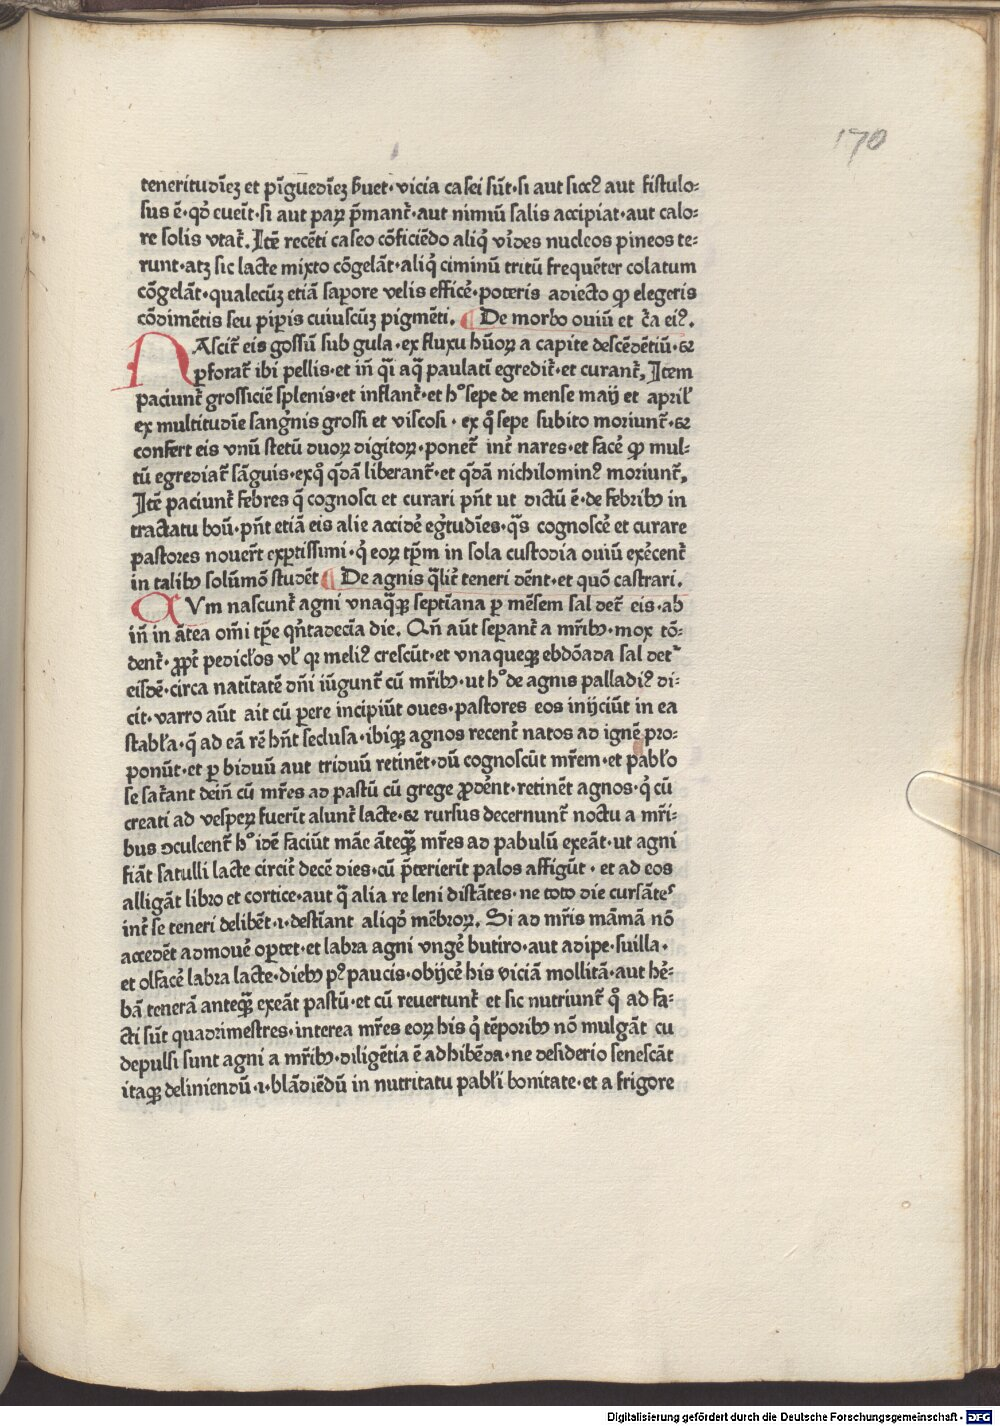 170
teneritudīeʒ et pīguedīeʒ ẜuet·vicia casei sūt·si aut siccꝰ aut fistulo⸗
sus ē·qđ eueīt·si aut paꝝ p̄mant᷑·aut nimiū salis accipiat·aut calo⸗
re solis vtat᷑. Itē recēti caseo cōficiēdo aliq̇ vir̃des nucleos pineos te⸗
runt·atʒ sic lacte mixto cōgelāt·aliq̇ ciminū tritū frequēter colatum
cōgelāt·qualecūʒ etiā sapore velis efficē·poteris adiecto qđ elegeris
cōdimētis seu pipis cuiuscūʒ pigmēti. ¶ De morbo ouiū et c̄a eiꝰ.
NAscit᷑ eis gossū sub gula·ex fluxu hūoꝝ a capite descēdētiū·⁊
ꝑforat᷑ ibi pellis·et iñ q̄i aq̄ paulati egredit᷑·et curant᷑, Item
paciunt᷑ grossiciē splenis·et inflant᷑·et hͦ sepe de mense maij et april᷑
ex multitudīe sang̓nis grossi et viscosi·ex q̊ sepe subito moriunt᷑·⁊
confert eis vnū stetū duoꝝ digitoꝝ·ponet᷑ int᷑ nares·et facē qđ mul⸗
tū egrediat᷑ sāguis·exq̊ q̄dā liberant᷑·et q̄dā nichilominꝰ moriunt᷑,
Itē paciunt᷑ febres q̄ cognosci et curari pñt ut dictū ē·de febribꝫ in
tractatu boū·pñt etiā eis alie accidē eg̓tudīes·q̄s cognoscē et curare
pastores nouer̄t exꝑtissimi·q̇ eoꝝ tp̄m in sola custodia ouiū exẽcent᷑
in talibꝫ solūmō studēt ¶ De agnis q̄lit᷑ teneri dēnt·et quō castrari.
CVm nascunt᷑ agni vnaq̄qꝫ septīana ꝑ mēsem sal det᷑ eis·ab
iñ in ātea om̄i tp̄e qⁱntadecīa die. Qñ aūt sepant᷑ a mr̄ibꝫ·mox tō⸗
dent᷑·ꝓpt᷑ pedicłos vł qꝛ meliꝰ crescūt·et vnaqueqꝫ ebdōada sal det᷑
eisdē·circa natītatē dñi iūgunt᷑ cū mr̄ibꝫ·ut hͦ de agnis palladiꝰ di⸗
cit·varro aūt ait cū ꝑere incipiūt oues·pastores eos inijciūt in ea
stabła·q̄ ad eā rē hñt seclusa·ibiqꝫ agnos recent᷑ natos ad ignē pro⸗
ponūt·et ꝑ biduū aut triduū retinēt·dū cognoscūt mr̄em·et pabło
se sat᷑ant deiñ cū mr̄es ad pastū cū grege ꝓdēnt·retinēt agnos·q̇ cū
creati ad vesꝑeꝝ fuerīt alunt᷑ lacte·⁊ rursus decernunt᷑ noctu a mr̄i⸗
bus ꝯculcent᷑ hͦ idē faciūt māe āteqꝫ mr̄es ad pabulū exeāt·ut agni
fiāt satulli lacte circit᷑ decē dies·cū p̄terierīt palos affigūt·et ad eos
alligāt libro et cortice·aut q̄ alia re leni distātes·ne toto die cursātes
int᷑ se teneri delibēt·i·destīant aliqđ mēbroꝝ. Si ad mr̄is māmā nō
accedēt admouē oꝑtet·et labra agni vngē butiro·aut adipe·suilla·
et olfacē labra lacte·diebꝫ pꝰ paucis·obijcē his viciā mollitā·aut hē⸗
bā tenerā anteqꝫ exeāt pastū·et cū reuertunt᷑ et sic nutriunt᷑ q̊ ad fa⸗
cti sūt quadrimestres·interea mr̄es eoꝝ his q̇ tēporibꝫ nō mulgāt cu
depulsi sunt agni a mr̄ibꝫ·diligētia ē adhibēda·ne desiderio senescāt
itaqꝫ deliniendū·i·blādiēdū in nutritatu pabłi bonitate·et a frigore
Digitalisierung gefördert durch die Deutsche Forschungsgemeinschaft - DFG